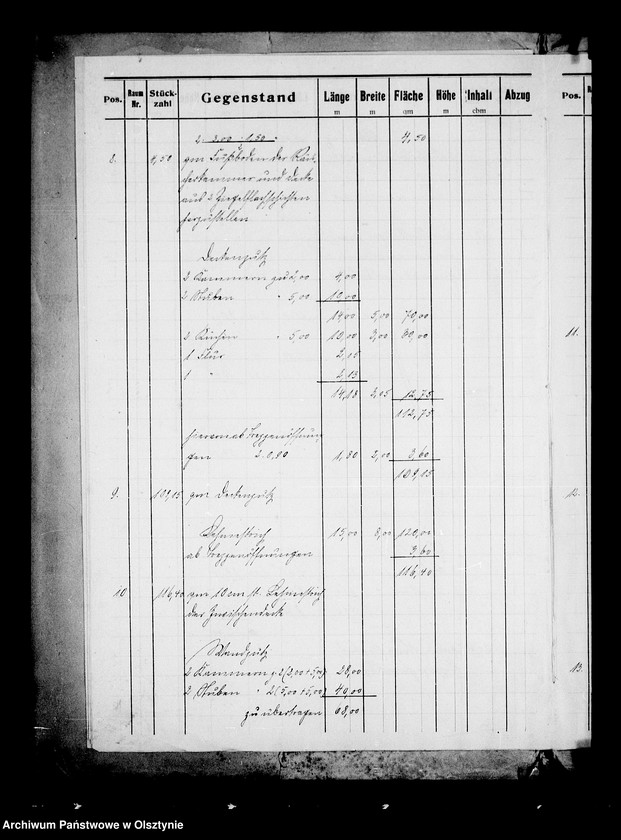 Pos. Raum Nr. Stück- zahl Gegenstand Länge m Breite m Fläche qm Höhe m Inhalt cbm Abzug Pos.
2. 3.00 1.50 = 4,50
8. 4,50 qm Fußboden der Räu-
cherkammer und Decke
aus 2 Ziegelflachschichten
herzustellen
Deckenputz
2 Kammern zu 2,00 4,00
2 Stuben " 5,00 10,00
14,00 5,00 70,00
2 Küchen " 5,00
1 Flur
1 "
12,75
112,75
hiervon ab Treppenöffnun-
gen 2.0,90 1,80 2,00 3,60
109,15
9. 109,15 qm Deckenputz
Lehmestrich 15,00 8,00 120,00
ab Treppenöffnungen 3,60
116,40
10 116,40 qm 10 cm st. Lehmestrich
der Zwischendecke
Wandputz
2 Kammern 28,00
2 Stuben " 2(5,00+5,00) 40,00
zu übertragen 68,00
11.
12.
13.
Archiwum Państwowe w Olsztynie